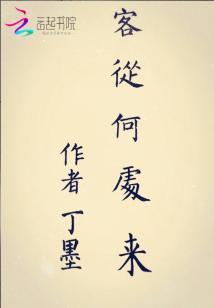 云起书院
客從何處来
作者丁墨